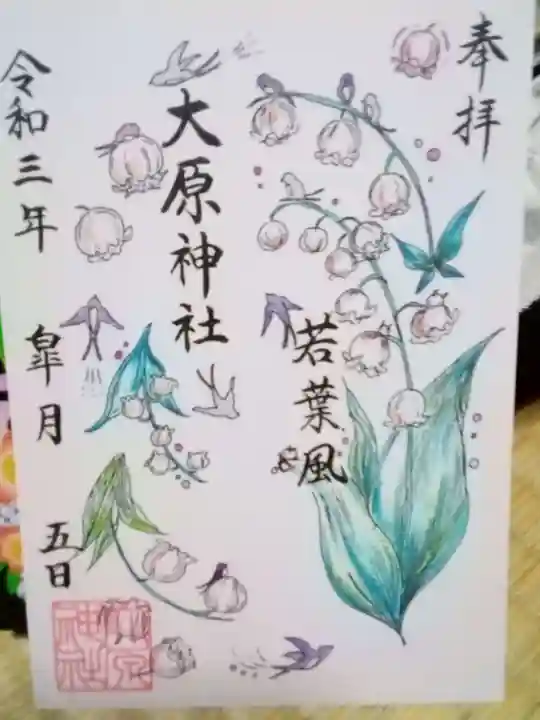 奉拝
若葉風
大原神社
令和三年
皐月
五日